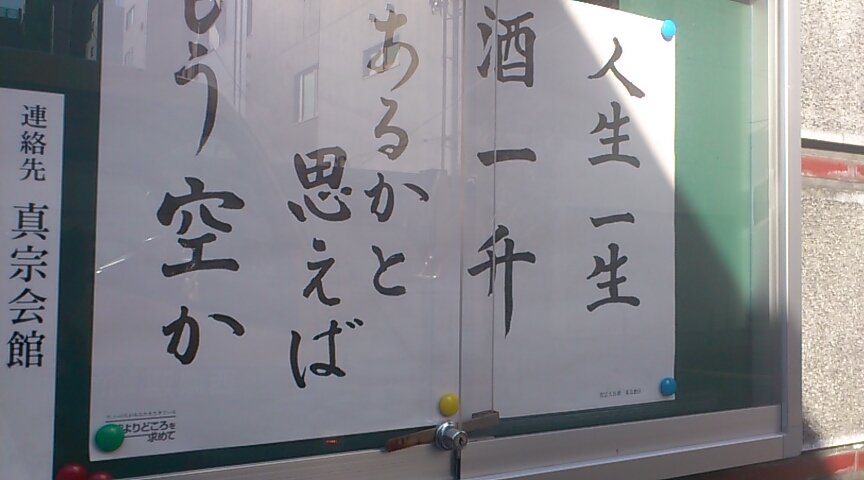 人生一生
酒一升
あるかと
思えば
もう空か
よりどころを
求めて
連絡先 真宗会館